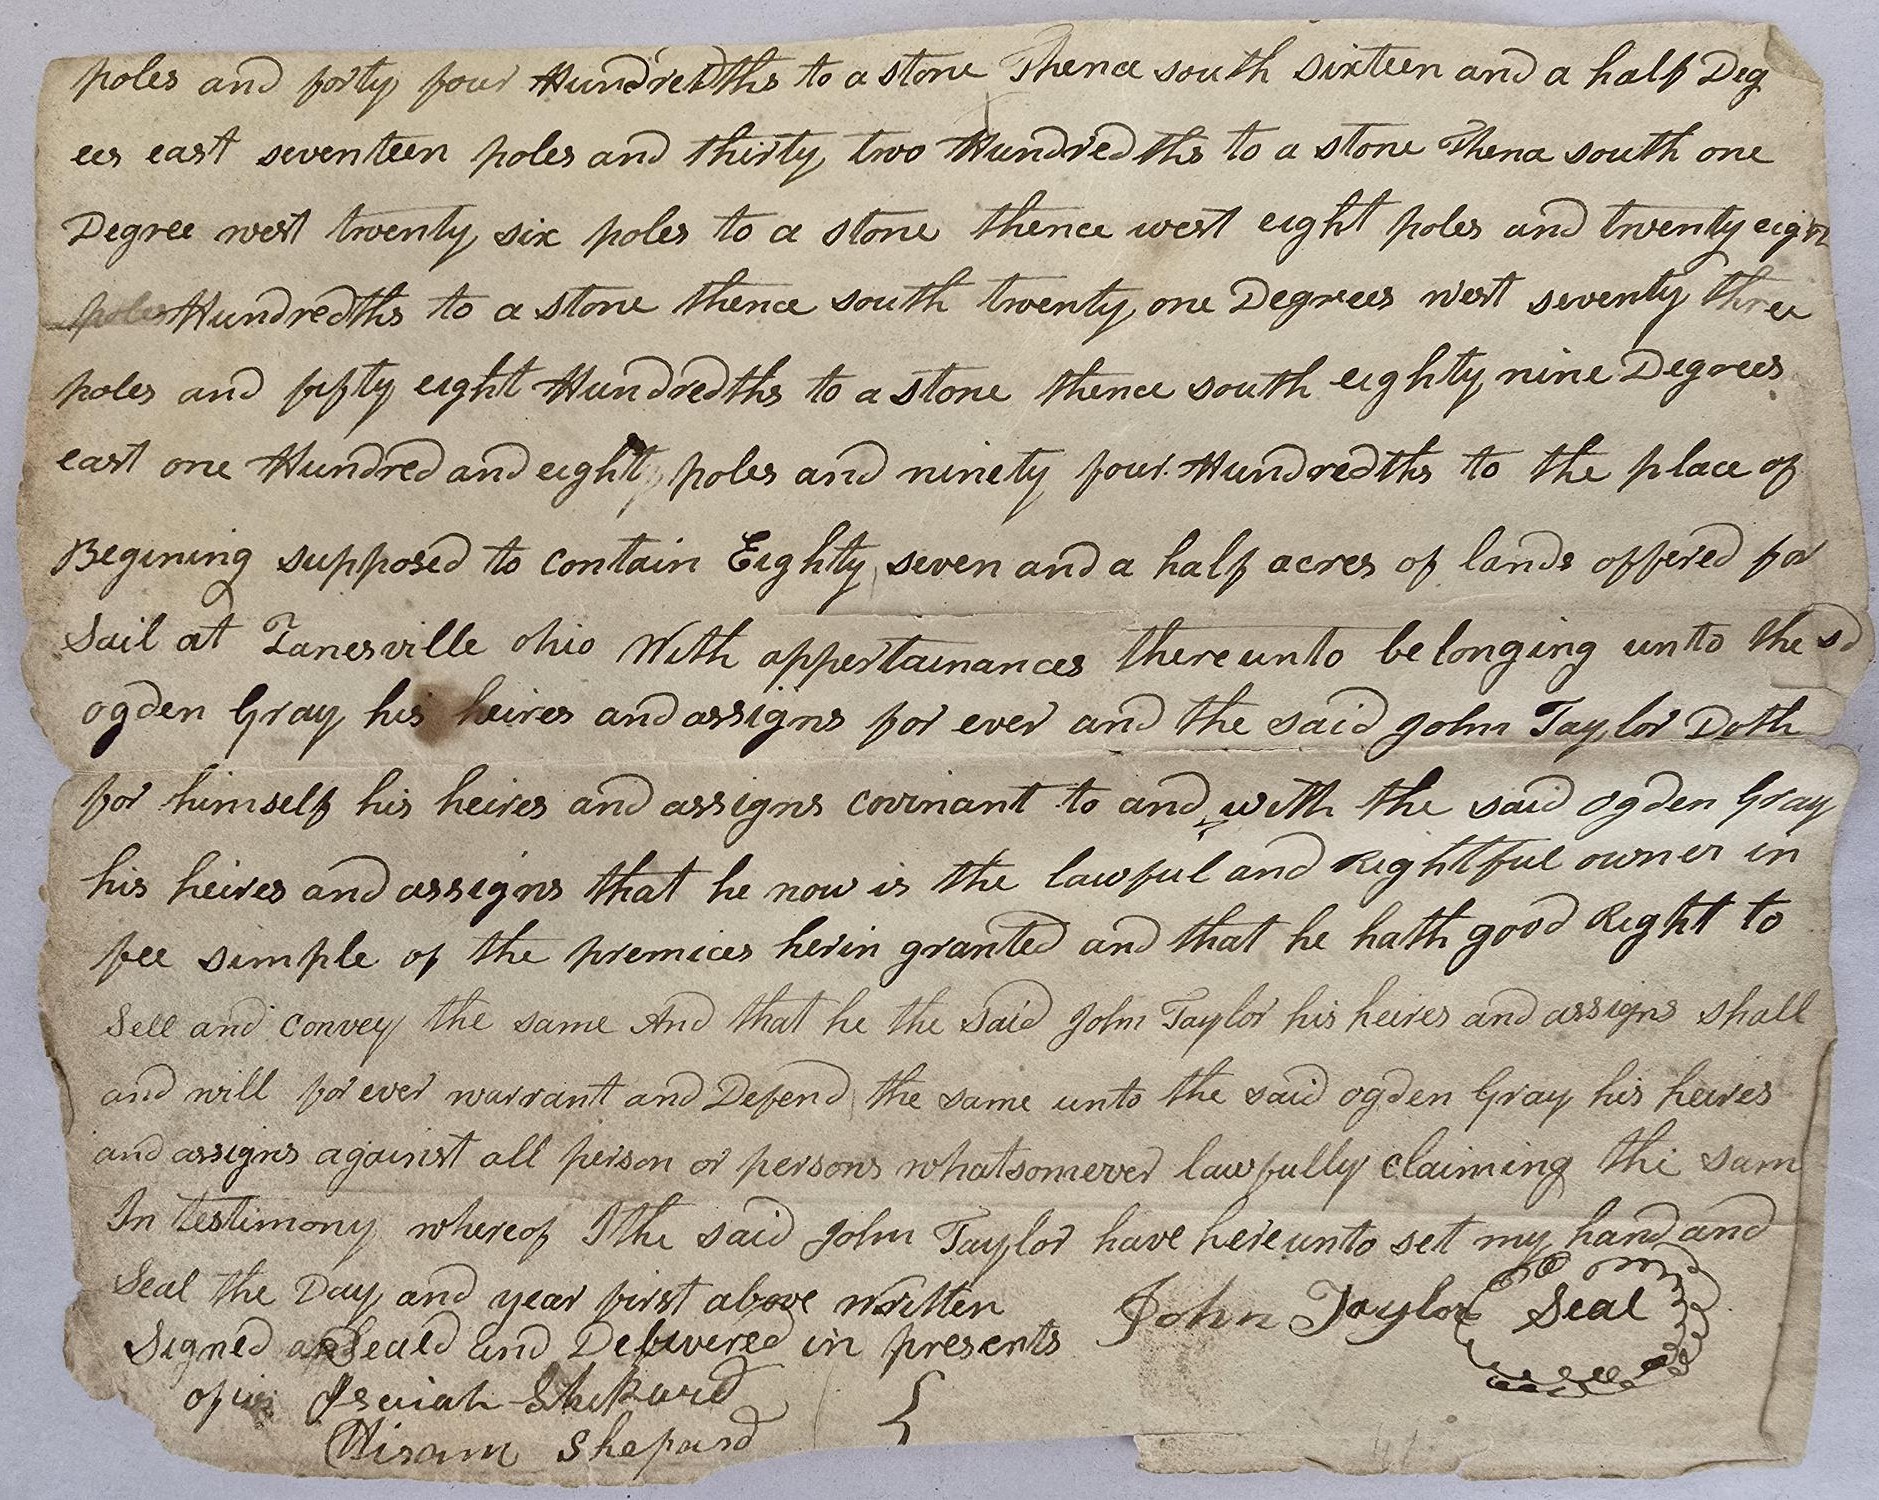 poles and forty four Hundredths to a stone Thence south sixteen and a half Deg
ees east seventeen poles and thirty two Hundredths to a stone Thence south one
Degree west twenty six poles to a stone thence west eight poles and twenty eight
poles Hundredths to a stone thence south twenty one Degrees west seventy three
poles and fifty eight Hundredths to a stone thence south eighty nine Degrees
east one Hundred and eight poles and ninety four Hundredths to the place of
Begining supposed to contain Eighty seven and a half acres of lands offered for
Sail at Zanesville ohio With appertainances thereunto belonging unto the sd
ogden Gray his heires and assigns for ever and the said John Taylor Doth
for himself his heires and assigns covinant to and with the said ogden Gray
his heires and assigns that he now is the lawful and Rightful owner in
fee simple of the premices herin granted and that he hath good Right to
Sell and convey the same And that he the said John Taylor his heires and assigns shall
and will for ever warrant and Defend the same unto the said ogden Gray his heires
and assigns against all person or persons whatsomever lawfully claiming the sam
In testimony whereof I the said John Taylor have hereunto set my hand and
Seal the Day and year first above written John Taylor Seal
Signed Seald and Delivered in presents
of us Isaiah Shepard
Hiram Shepard